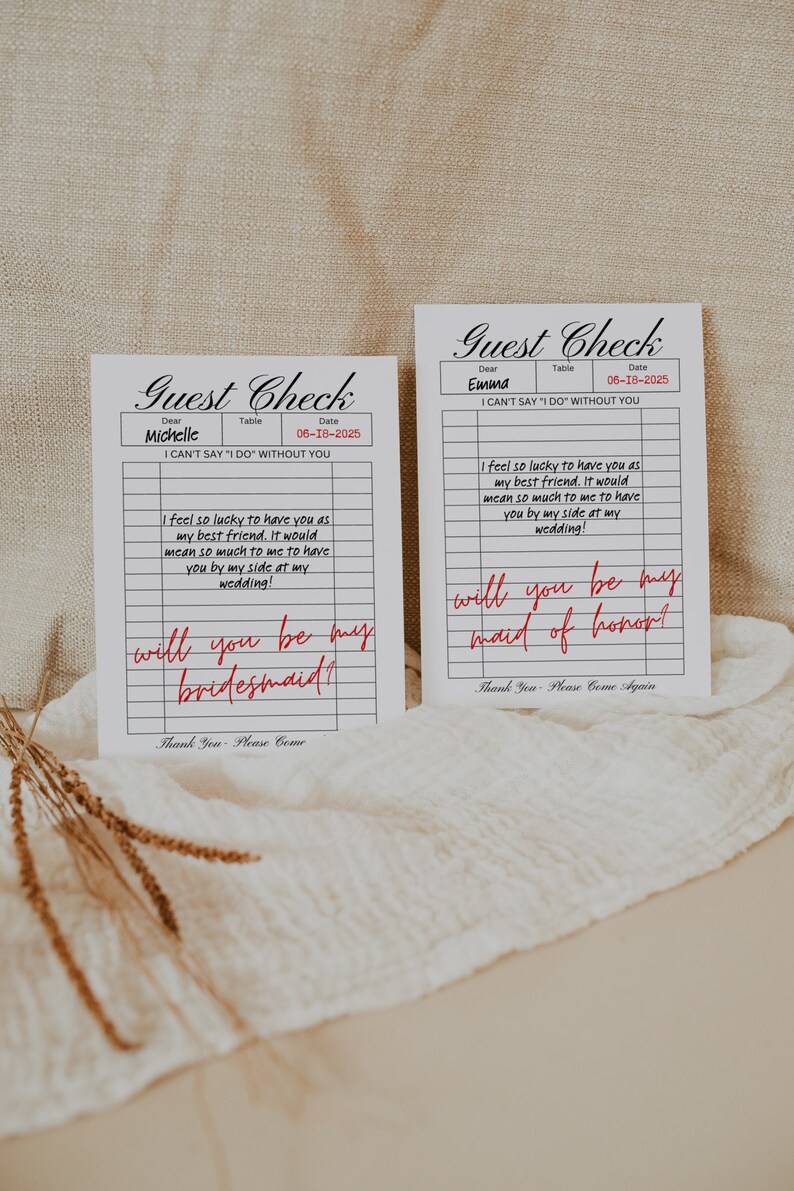 Guest Check
Dear Table Date
Michelle 06-18-2025
I CAN'T SAY "I DO" WITHOUT YOU
I feel so lucky to have you as
my best friend. It would
mean so much to me to have
you by my side at my
wedding!
will you be my
bridesmaid?
Thank You- Please Come
Guest Check
Dear Table Date
Emma 06-18-2025
I CAN'T SAY "I DO" WITHOUT YOU
I feel so lucky to have you as
my best friend. It would
mean so much to me to have
you by my side at my
wedding!
will you be my
maid of honor?
Thank You- Please Come Again